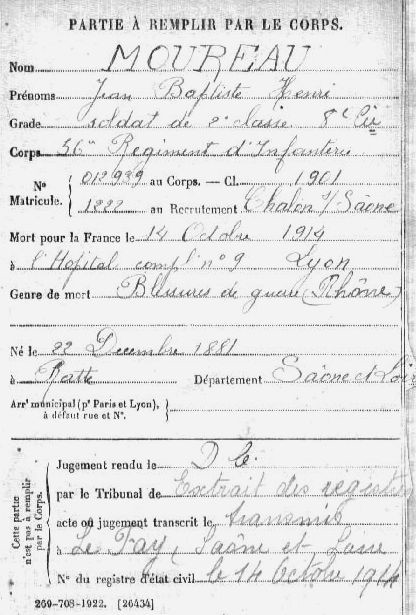 PARTIE À REMPLIR PAR LE CORPS.
Nom MOUREAU
Prénoms Jean Baptiste Henri
Grade soldat de 2e classe 8e Cie
Corps 56e Régiment d'Infanterie
N° Matricule. { 012939 au Corps. — Cl. 1901
1222 au Recrutement Chalon s/ Saône
Mort pour la France le 14 Octobre 1914
à l'Hopital compl. n° 9 Lyon
Genre de mort Blessures de guerre (Rhône)
Né le 22 Decembre 1881
à Ratte Département Saône et Loire
Arr' municipal (p' Paris et Lyon), à défaut rue et N°. {
Cette partie n'est pas à remplir par le Corps.
Jugement rendu le
par le Tribunal de Extrait des registres
acte ou jugement transcrit le transmis
à Le Fay, Saône et Loire
N° du registre d'état civil le 14 Octobre 1914
269-708-1922. [26434]